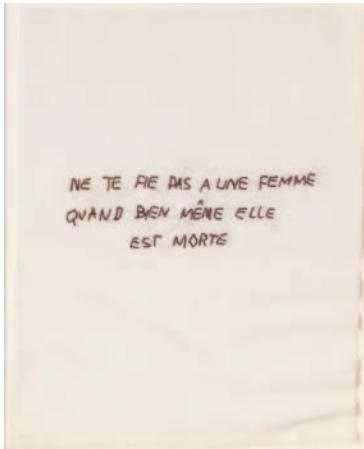 NE TE FIE PAS A UNE FEMME
QUAND BIEN MÊME ELLE
EST MORTE